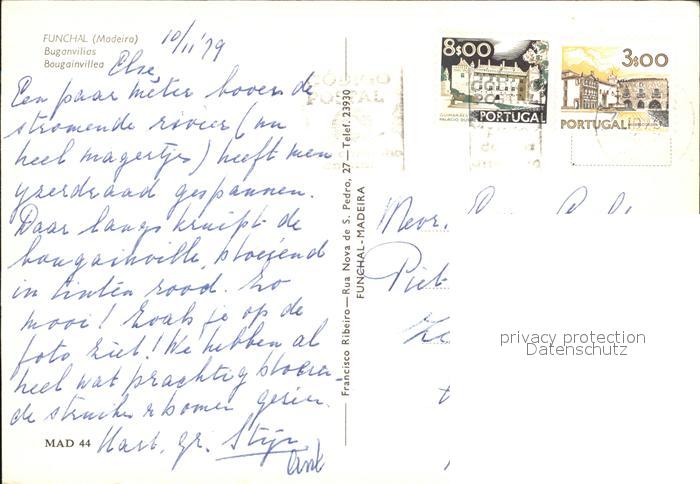 FUNCHAL (Madeira)
Buganvilias
Bougainvillea
10/11'79
Else
Een paar meter boven de
stromende rivier (nu
heel magertjes) heeft men
yzerdraad gespannen.
Daar langs kruipt de
bougainville, bloeiend
in tinten rood. Zo
mooi! Zoals je op de
foto ziet! We hebben al
heel wat prachtig bloeien-
de struiken bomen gezien.
Hart. gr. Stijn
MAD 44
Francisco Ribeiro — Rua Nova de S. Pedro, 27 — Telef. 23930
FUNCHAL-MADEIRA
CÓDIGO
POSTAL
8$00
GUIMARÃES
PORTUGAL
3$00
PORTUGAL
Mevr.
Piet
privacy protection
Datenschutz